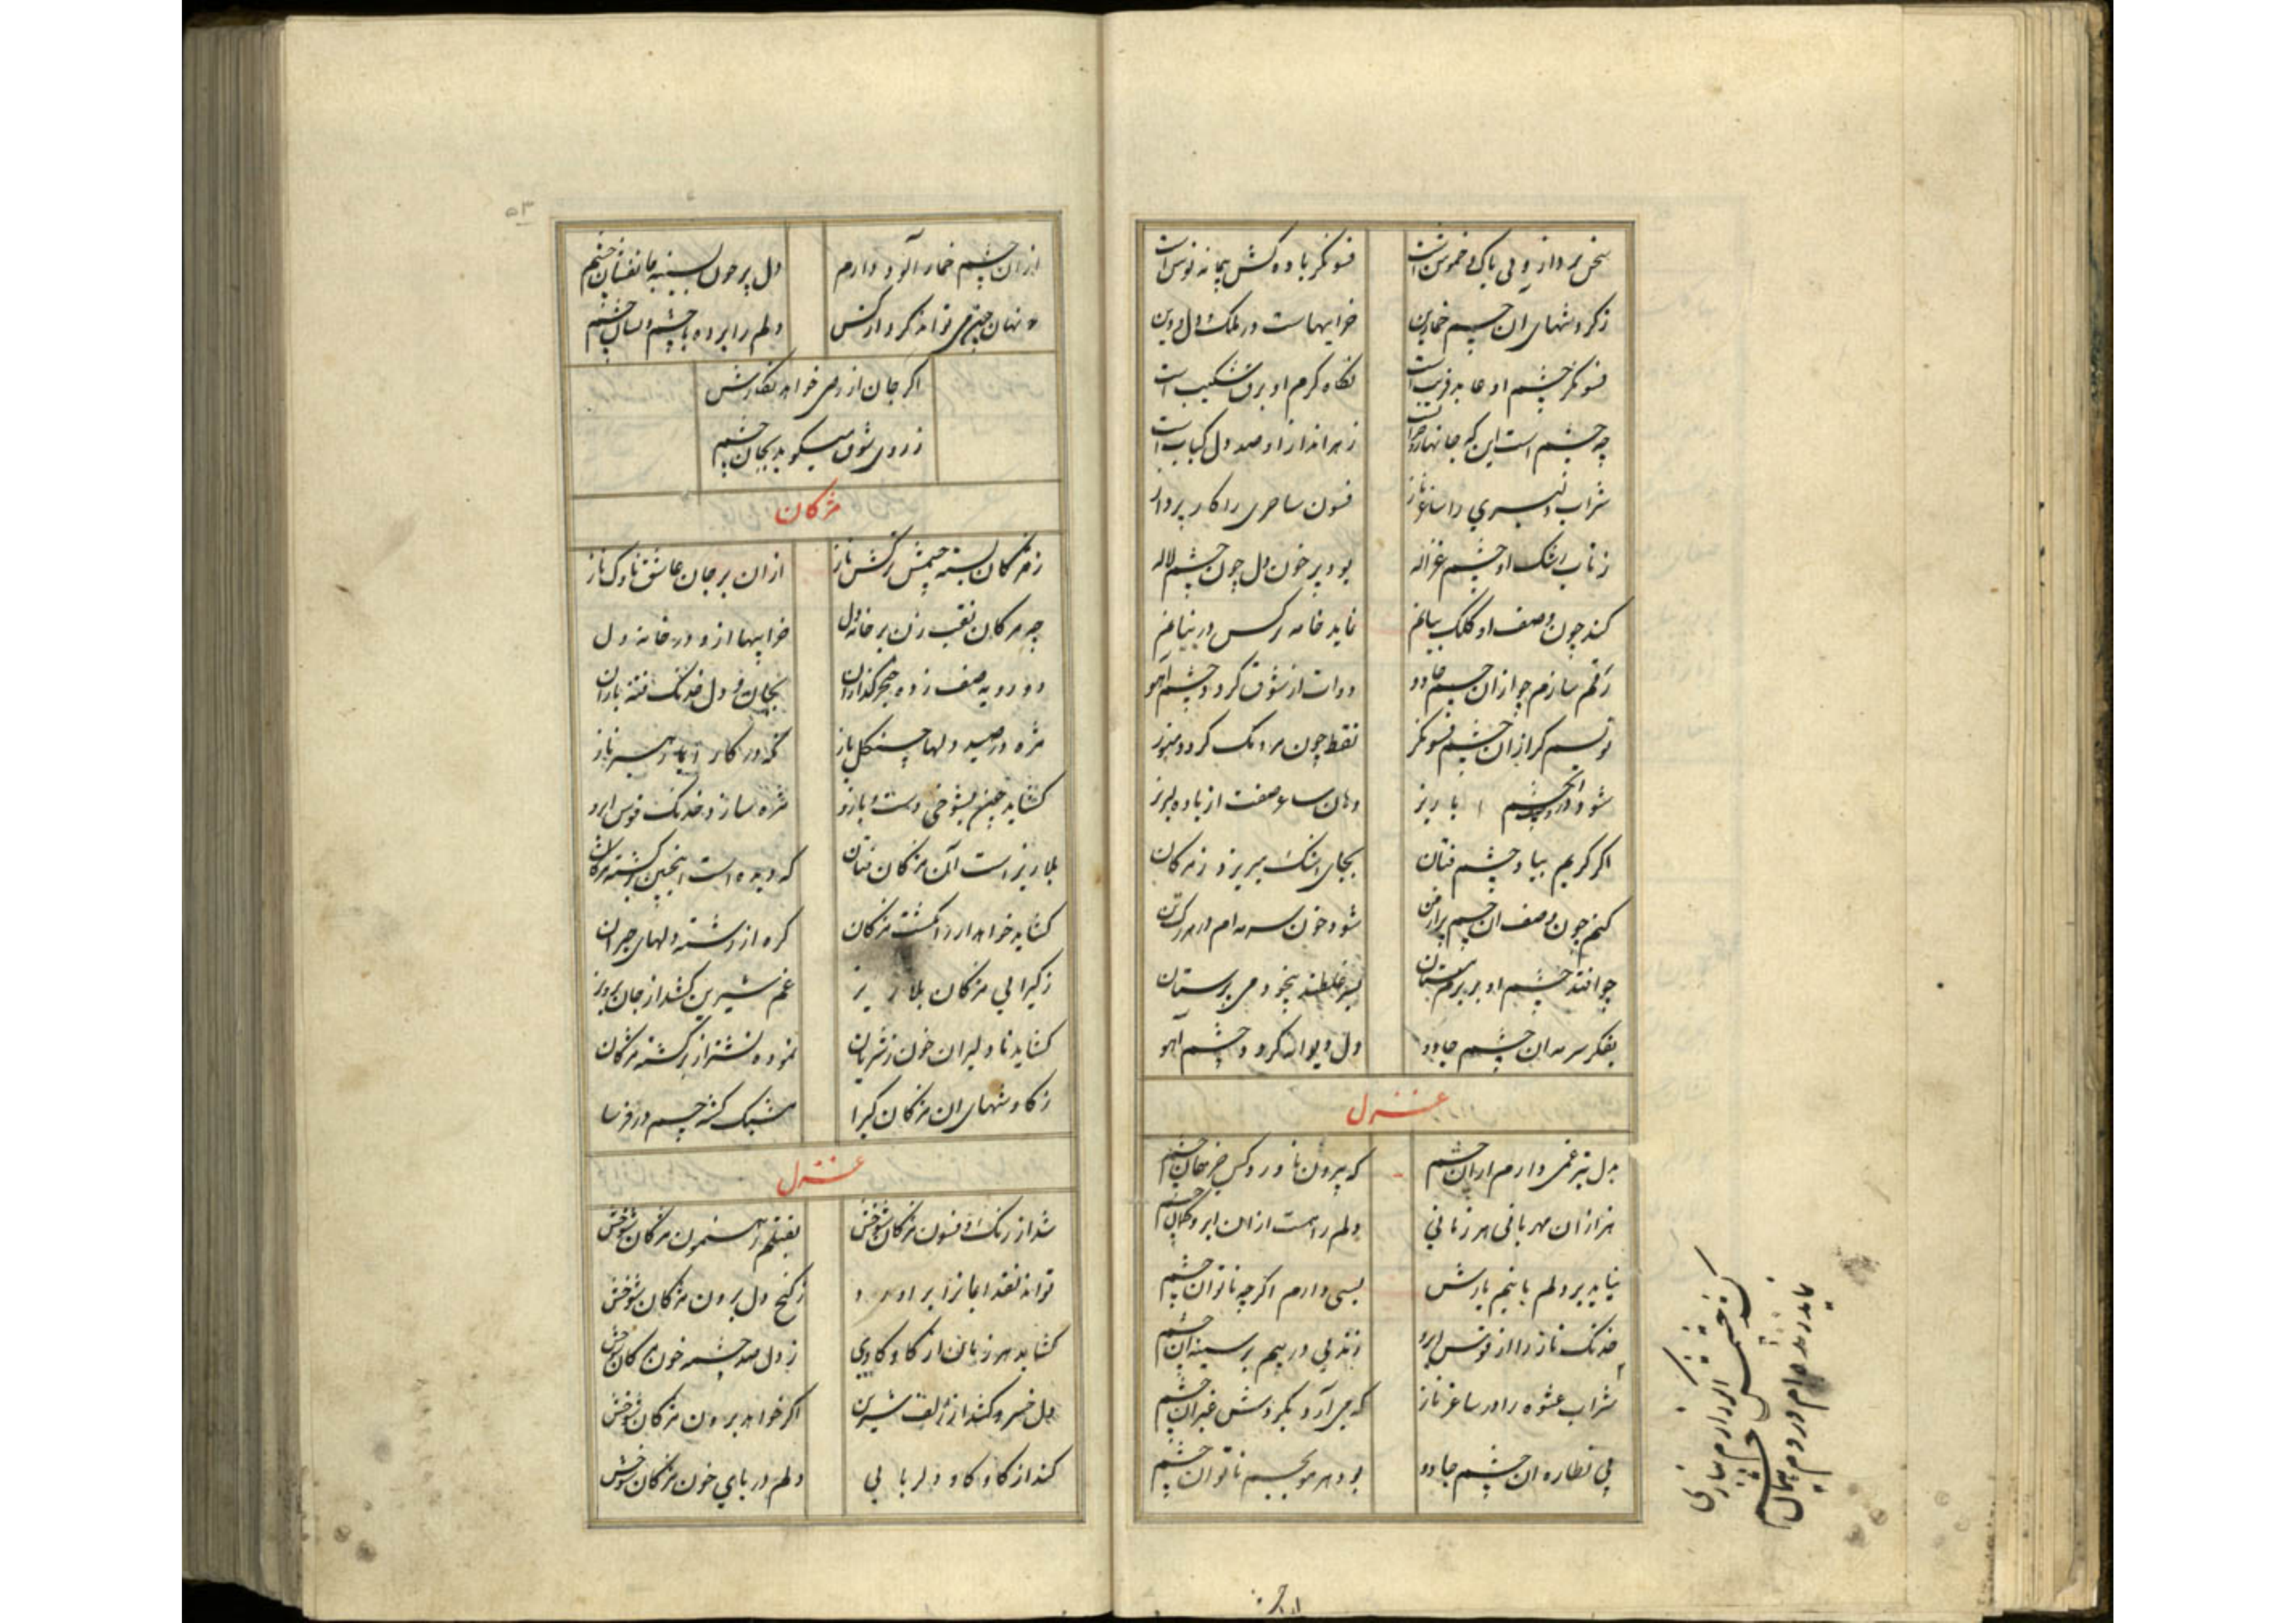 سخن پرداز و بی باک و خموش است فسونگر باده کش پیمانه نوش است
ز گردشهای ان چشم خمارین خرابیهاست در ملک دل و دین
فسونگر چشم او عابد فریب است نگاه گرم او برق شکیب است
چه چشم است این که جانها ز هر انداز او صد دل کباب است
شراب دلبری را ساغر ناز فسون ساحری را کار پرداز
ز تاب رشک او چشم غزاله بود پر خون دل چون چشم لاله
کند چون وصف او کلک بیانم نماید خامه نرکس در بنانم
رقم سازم چو از ان چشم جادو دوات از شوق گردد چشم آهو
نویسم کر ازان چشم فسونگر نقط چون مردمک گردد
شود در چشم ریز دهان ساغر صفت از باده لبریز
اگر گریم بیاد چشم فتان بجای اشک میریزد ز مژگان
کنم چون وصف ان چشم پر از فن شود خون سرمه ام در هر رگ تن
چو افتد چشم او بر بزم مستان بسر غلطند بیخود می پرستان
بفکر سرمه ان چشم جادو دل دیوانه گردد چشم آهو
غزل
بدل تیر غمی دارم از ان چشم که بیرون ناورد کس جز بجان چشم
هزاران مهربانی هر زمانی دلم را هست ازان ابرو کمان چشم
نیاید بر دلم با نیم بازش بسی دارم اگر چه ناتوان چشم
خدنگ ناز را از قوس ابرو زند پی در پیم بر سینه ان چشم
شراب عشوه را در ساغر ناز که می آرد بگردش غیر ان چشم
پی نظاره ان چشم جادو بود هر مو بجسم ناتوان چشم
از ان چشم خمار آلود دارم دل پر خون بسینه جانفشان چشم
نهان چیزی تواند کرد از کس دلم را برده با چشم و لسان چشم
اگر جان از رهی خواهد نگارش
ز روی شوق میگوید بجان چشم
مژگان
ز مژگان بسته چشمش ترکش ناز ازان بر جان عاشق ناوک انداز
چه مژگان نقب زن بر خانه دل خرابیها ازو در خانه دل
دو رویه صف زده خنجر گذاران بجان و دل خدنگ فتنه باران
مژه در صید دلها چنگل باز نگه در کار
گشاید چون بشوخی دست و بازو مژه سازد خدنگ قوس ابرو
بلا ریز است آن مژگان فتان که دیده است اینچنین برگشته مژگان
گشاید خواهد ار ز انگشت مژگان گره از رشته دلهای حیران
ز گیرایی مژگان بلا ریز غم شیرین کشد از جان پرویز
گشاید تا دلیران خون ز شریان نموده نشتر از برگشته مژگان
ز کاوشهای ان مژگان گیرا مشبک گشته چشم
غزل
شد از رنگ و فسون مژگان شوخش بقتلم رهنمون مژگان شوخش
تواند نقد ز کنج دل برون مژگان شوخش
گشاید هر زمان از کاوکاوی ز دل صد چشمه خون مژگان شوخش
دل خسرو کند از زلف شیرین اگر خواهد برون مژگان شوخش
کند از کاوکاو دلربایی دلم دریای خون مژگان شوخش